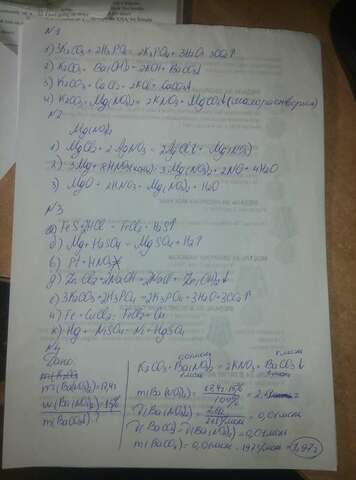 N1
1) 3K2CO3+2H3PO4=2K3PO4+3H2O+3CO2↑
2) K2CO3+Ba(OH)2=2KOH+BaCO3↓
3) K2CO3+CaCl2=2KCl+CaCO3↓
4) K2CO3+Mg(NO3)2=2KNO3+MgCO3↓(малорастворим)
N2
Mg(NO3)2
1) MgCl2+2AgNO3=2AgCl↓+Mg(NO3)2
2) 3Mg+8HNO3(конц)=3Mg(NO3)2+2NO+4H2O
3) MgO+2HNO3=Mg(NO3)2+H2O
N3
а) FeS+2HCl=FeCl2+H2S↑
б) Mg+H2SO4=MgSO4+H2↑
в) Pt+HNO3
д) ZnCl2+2NaOH=2NaCl+Zn(OH)2↓
е) 3K2CO3+2H3PO4=2K3PO4+3H2O+3CO2↑
Fe+CuCl2=FeCl2+Cu
к) Hg+NiSO4=Ni+HgSO4
N4
Дано:
m(Ba(NO3)2)=17,4г
w(Ba(NO3)2)=15%
m(BaCO3)-?
0,01моль
K2CO3+Ba(NO3)2=2KNO3+BaCO3↓
1моль 1моль
m(Ba(NO3)2)=
100%
n(Ba(NO3)2)= =0,01моль
261г/моль
n(BaCO3)=n(Ba(NO3)2)=0,01моль
m(BaCO3)=0,01моль·197г/моль=1,97г